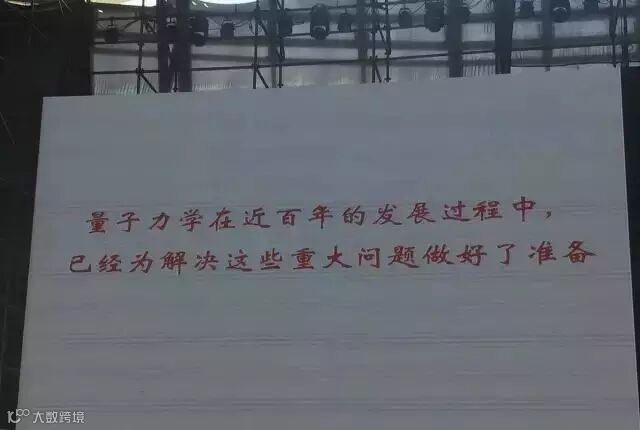 量子力学在近百年的发展过程中，
已经为解决这些重大问题做好了准备
大数跨境